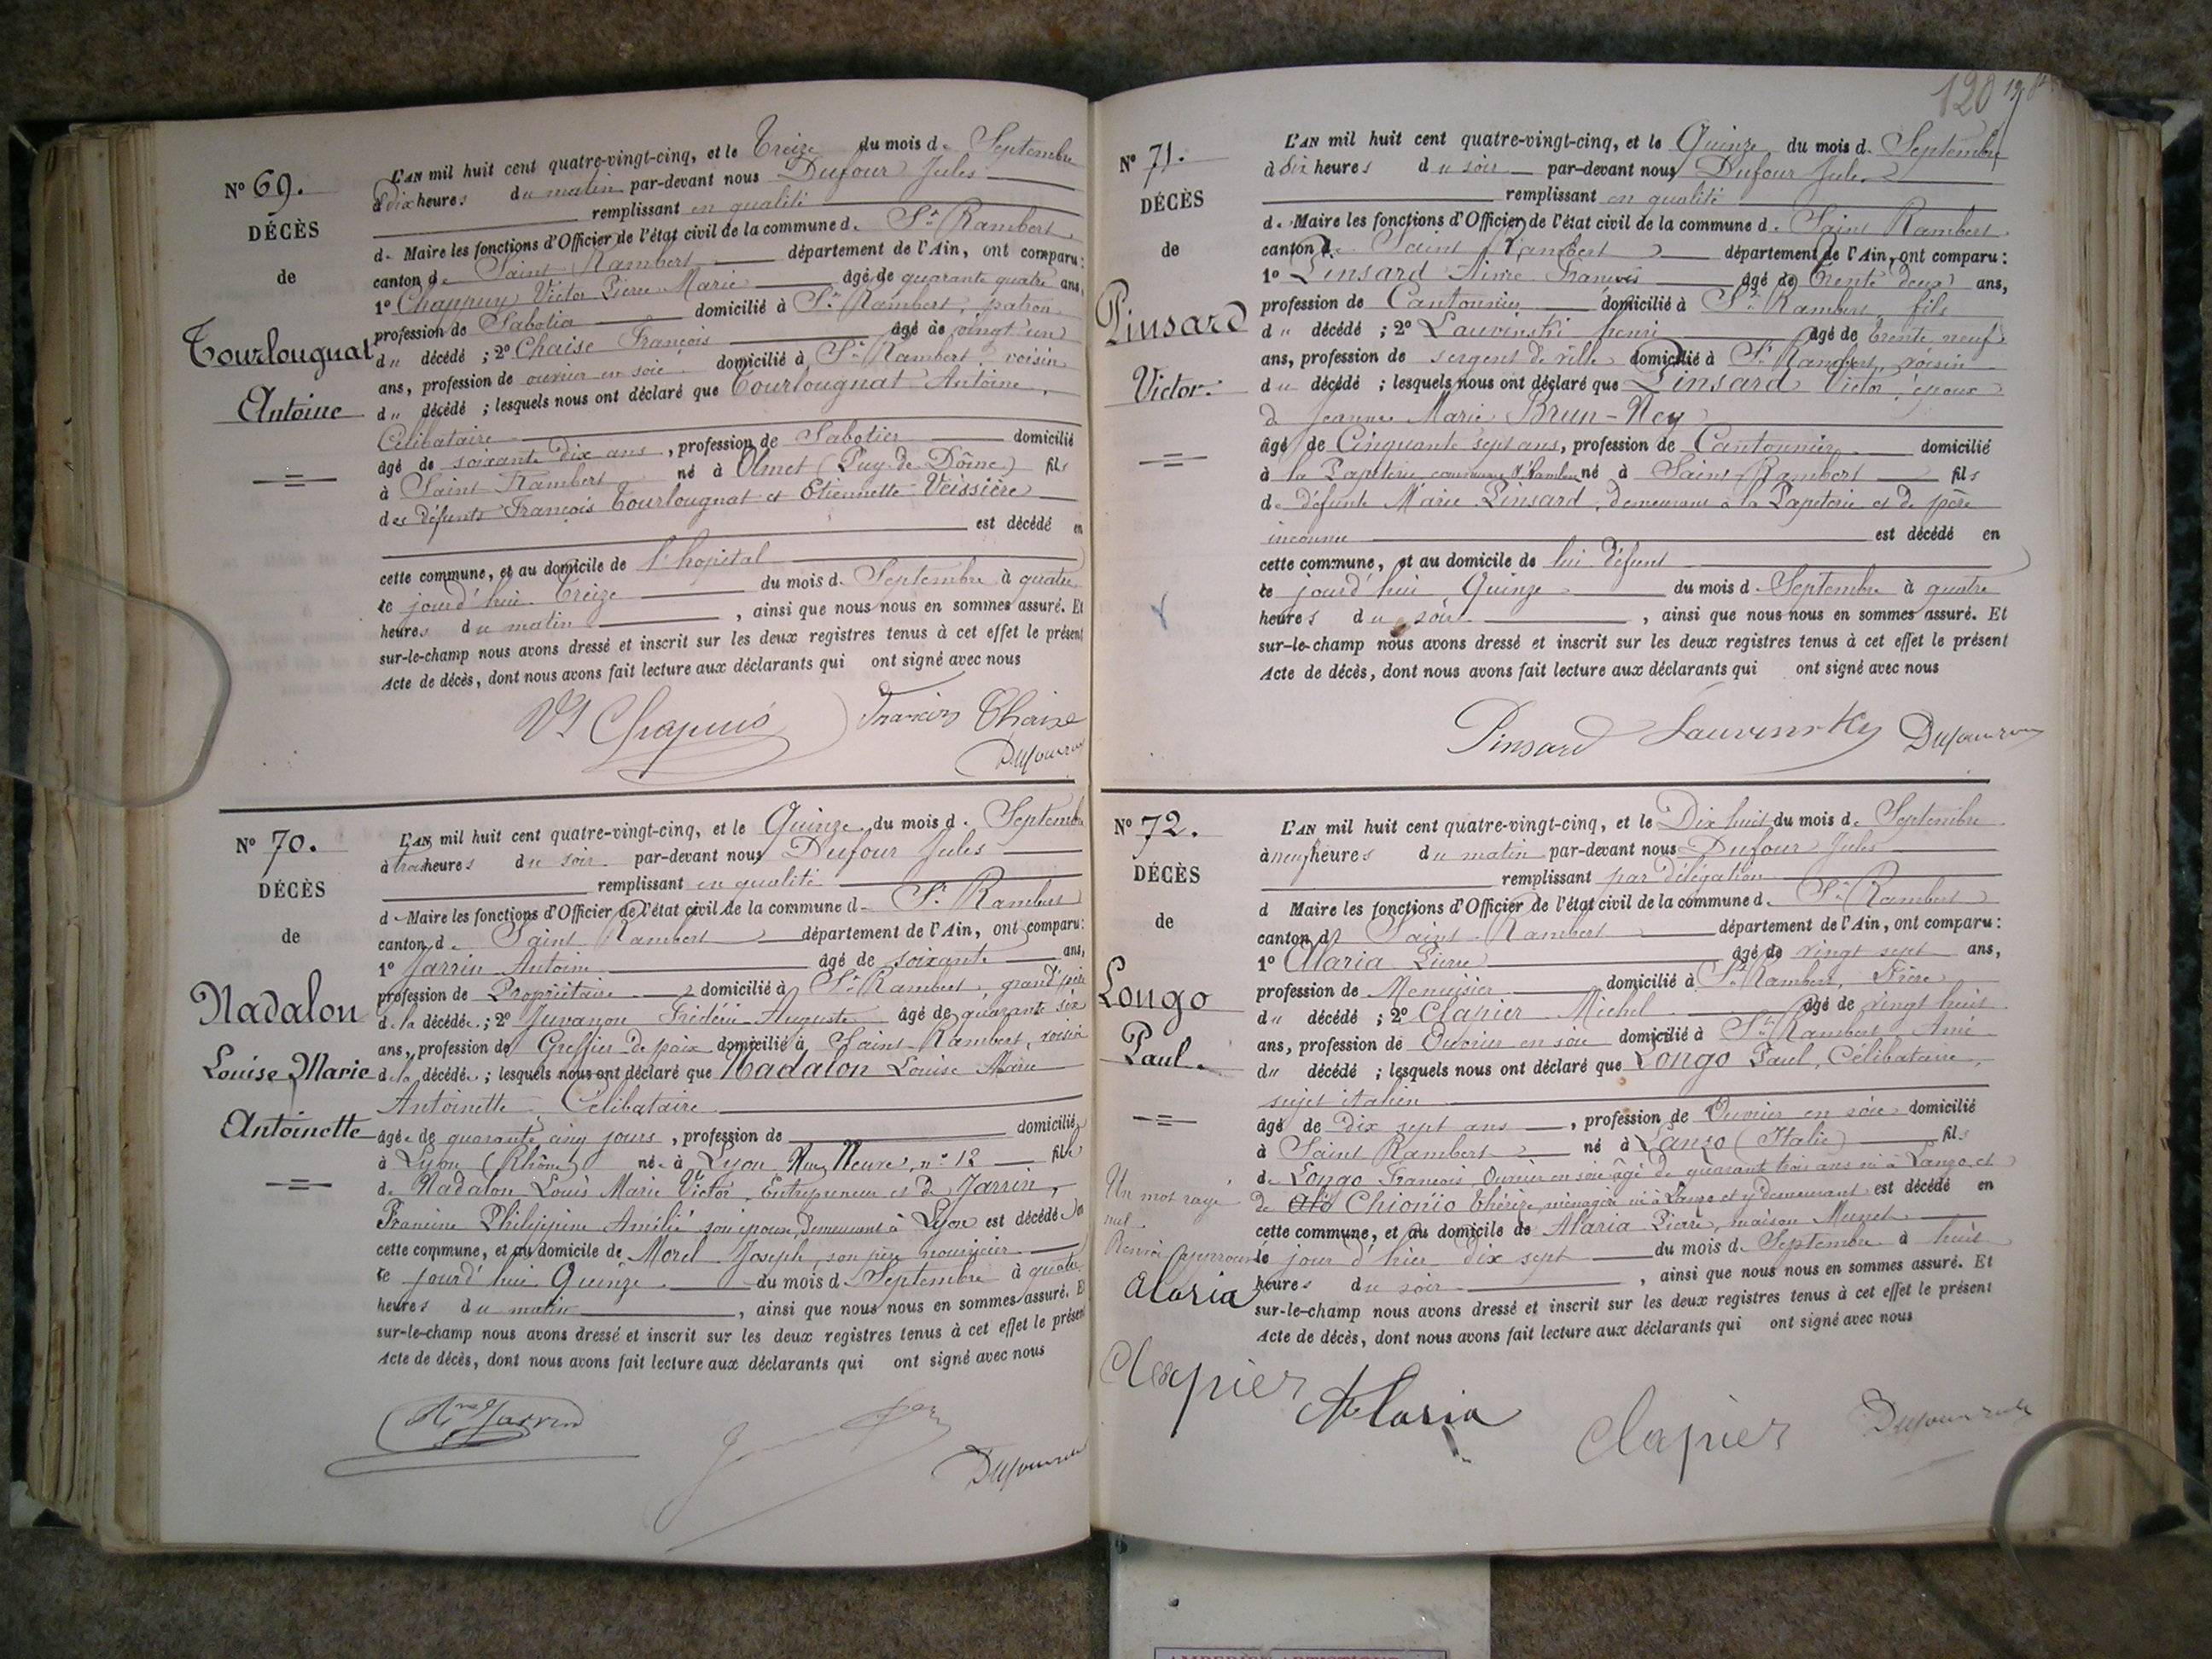 N° 69.
DÉCÈS
de
Tourlougnat
Antoine
L'AN mil huit cent quatre-vingt-cinq, et le Treize du mois de Septembre
à dix heures du matin par-devant nous Dufour Jules
remplissant en qualité
de Maire les fonctions d'Officier de l'état civil de la commune de St Rambert
canton de Saint Rambert département de l'Ain, ont comparu:
1° Chappuy Victor Pierre Marie âgé de quarante quatre ans,
profession de Sabotier domicilié à St Rambert, patron
du décédé ; 2° Chaise François âgé de vingt un
ans, profession de ouvrier en soie domicilié à St Rambert voisin
du décédé ; lesquels nous ont déclaré que Tourlougnat Antoine,
Célibataire
âgé de soixante dix ans, profession de Sabotier domicilié
à Saint Rambert né à Olmet (Puy-de-Dôme) fils
des défunts François Tourlougnat et Etiennette Veissière
est décédé en
cette commune, et au domicile de l'hopital
le jourd'hui Treize du mois de Septembre à quatre
heures du matin, ainsi que nous nous en sommes assuré. Et
sur-le-champ nous avons dressé et inscrit sur les deux registres tenus à cet effet le présent
Acte de décès, dont nous avons fait lecture aux déclarants qui ont signé avec nous
Vt Chapuis Francois Chaise
Dufour
N° 70.
DÉCÈS
de
Nadalon
Louise Marie
Antoinette
L'AN mil huit cent quatre-vingt-cinq, et le Quinze du mois de Septembre
à trois heures du soir par-devant nous Dufour Jules
remplissant en qualité
de Maire les fonctions d'Officier de l'état civil de la commune de St Rambert
canton de Saint Rambert département de l'Ain, ont comparu:
1° Jarrin Antoine âgé de soixante ans,
profession de Propriétaire domicilié à St Rambert, grand père
de la décédée ; 2° Juvanon Frédéric Auguste âgé de quarante six
ans, profession de Greffier de paix domicilié à Saint Rambert, voisin
de la décédée ; lesquels nous ont déclaré que Nadalon Louise Marie
Antoinette Célibataire
âgée de quarante cinq jours, profession de domicilié
à Lyon (Rhône) née à Lyon Rue Neuve, n° 12 fille
de Nadalon Louis Marie Victor, Entrepreneur et de Jarrin,
Francine Philippine Amélie son épouse, demeurant à Lyon est décédée en
cette commune, et au domicile de Morel Joseph, son père nourricier
le jourd'hui Quinze du mois de Septembre à quatre
heures du matin, ainsi que nous nous en sommes assuré. Et
sur-le-champ nous avons dressé et inscrit sur les deux registres tenus à cet effet le présent
Acte de décès, dont nous avons fait lecture aux déclarants qui ont signé avec nous
Jarrin
Dufour
120
N° 71.
DÉCÈS
de
Pinsard
Victor.
L'AN mil huit cent quatre-vingt-cinq, et le Quinze du mois de Septembre
à Six heures du soir par-devant nous Dufour Jules
remplissant en qualité
de Maire les fonctions d'Officier de l'état civil de la commune de Saint Rambert
canton de Saint Rambert département de l'Ain, ont comparu:
1° Pinsard Aimé François âgé de Trente deux ans,
profession de Cantonnier domicilié à St Rambert, fils
du décédé ; 2° Lauvinski henri âgé de trente neuf
ans, profession de sergent de ville domicilié à St Rambert, voisin
du décédé ; lesquels nous ont déclaré que Pinsard Victor, époux
de Jeanne Marie Brun-Ney
âgé de Cinquante sept ans, profession de Cantonnier domicilié
à la Papeterie commune St Rambert né à Saint Rambert fils
de défunte Marie Pinsard, demeurant à la Papeterie et de père
inconnu est décédé en
cette commune, et au domicile de lui défunt
le jourd'hui Quinze du mois de Septembre à quatre
heures du soir, ainsi que nous nous en sommes assuré. Et
sur-le-champ nous avons dressé et inscrit sur les deux registres tenus à cet effet le présent
Acte de décès, dont nous avons fait lecture aux déclarants qui ont signé avec nous
Pinsard Lauvinsky Dufour
N° 72.
DÉCÈS
de
Longo
Paul.
L'AN mil huit cent quatre-vingt-cinq, et le Dix huit du mois de Septembre
à neuf heures du matin par-devant nous Dufour Jules
remplissant par délégation
d Maire les fonctions d'Officier de l'état civil de la commune de St Rambert
canton de Saint Rambert département de l'Ain, ont comparu:
1° Alaria Pierre âgé de vingt sept ans,
profession de Menuisier domicilié à St Rambert, Frère
du décédé ; 2° Clapier Michel âgé de vingt huit
ans, profession de Ouvrier en soie domicilié à St Rambert Ami
du décédé ; lesquels nous ont déclaré que Longo Paul, Célibataire,
sujet italien
âgé de dix sept ans, profession de Ouvrier en soie domicilié
à Saint Rambert né à Lanzo (Italie) fils
de Longo François, Ouvrier en soie âgé de quarante trois ans né à Lanzo et
de Chionio Thérèze, ménagère né à Lanzo et y demeurant est décédé en
cette commune, et au domicile de Alaria Pierre, maison Munet
le jour d'hier dix sept du mois de Septembre à huit
heures du soir, ainsi que nous nous en sommes assuré. Et
sur-le-champ nous avons dressé et inscrit sur les deux registres tenus à cet effet le présent
Acte de décès, dont nous avons fait lecture aux déclarants qui ont signé avec nous
Un mot rayé
nul.
Renvoi approuvé
Alaria
Clapier Alaria Clapier Dufour